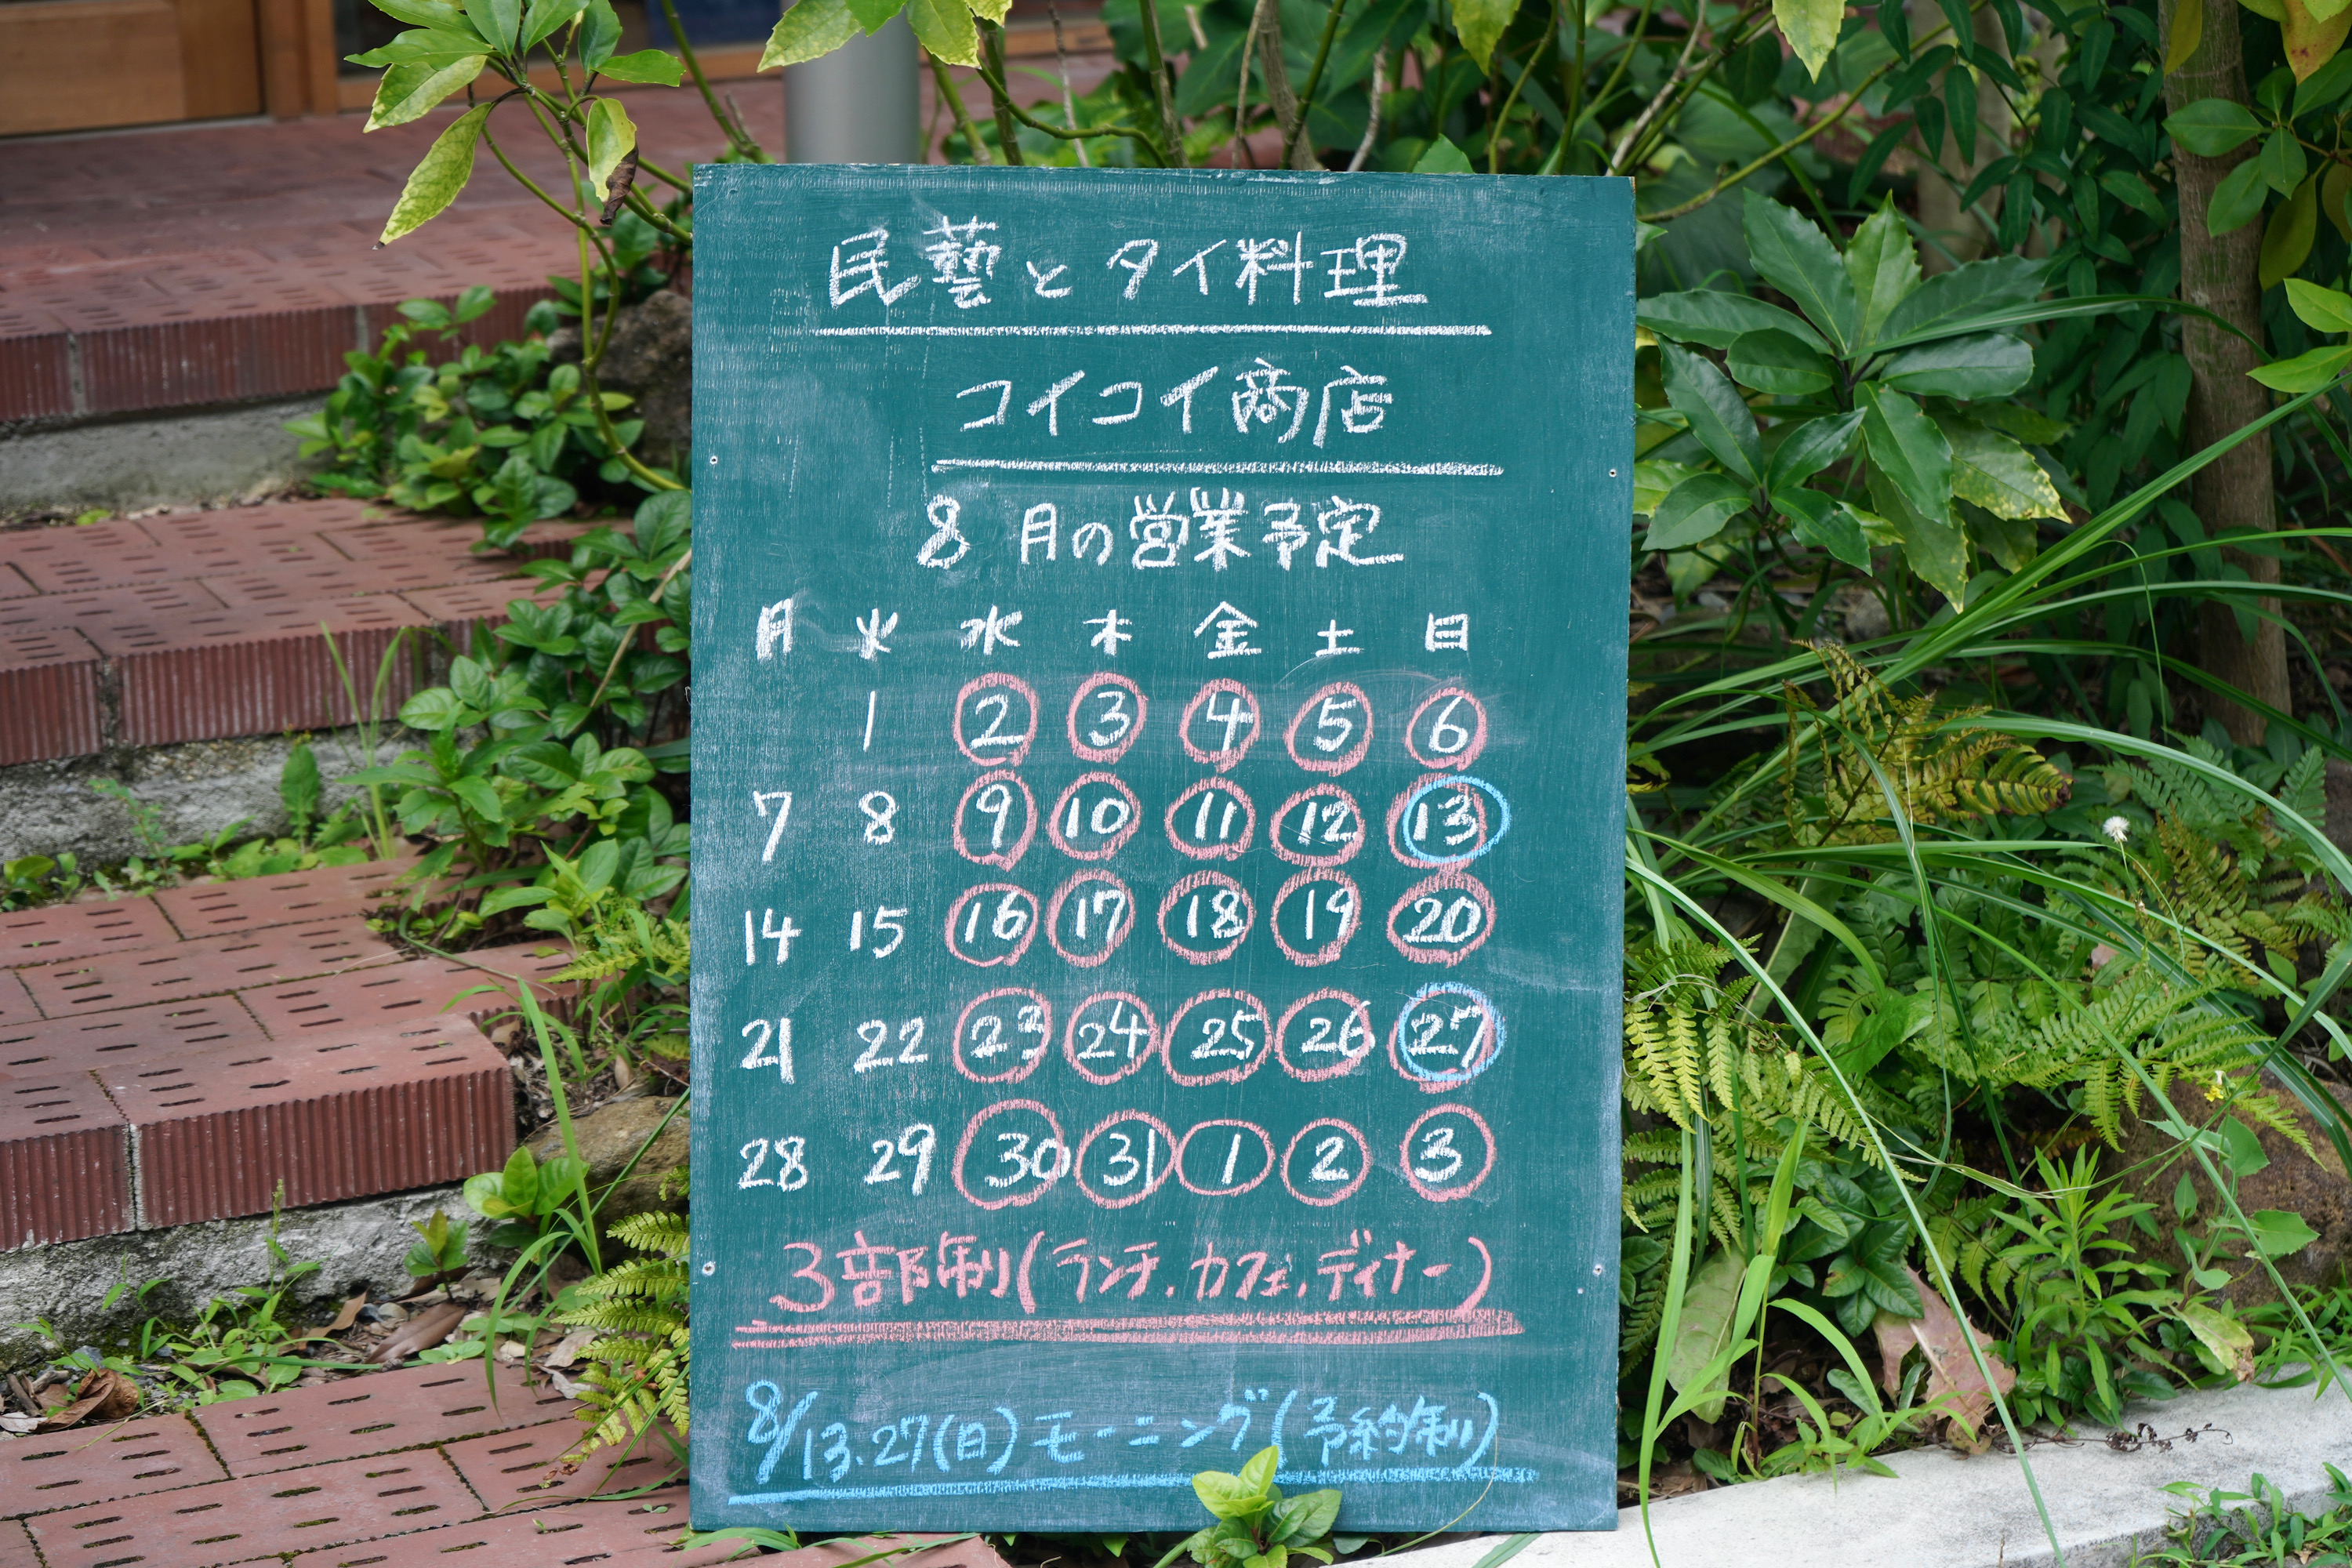 民藝とタイ料理
コイコイ商店
8月の営業予定
月 火 水 木 金 土 日
1 2 3 4 5 6
7 8 9 10 11 12 13
14 15 16 17 18 19 20
21 22 23 24 25 26 27
28 29 30 31 1 2 3
3部制(ランチ.カフェ.ディナー)
8/13.27(日)モーニング(予約制)